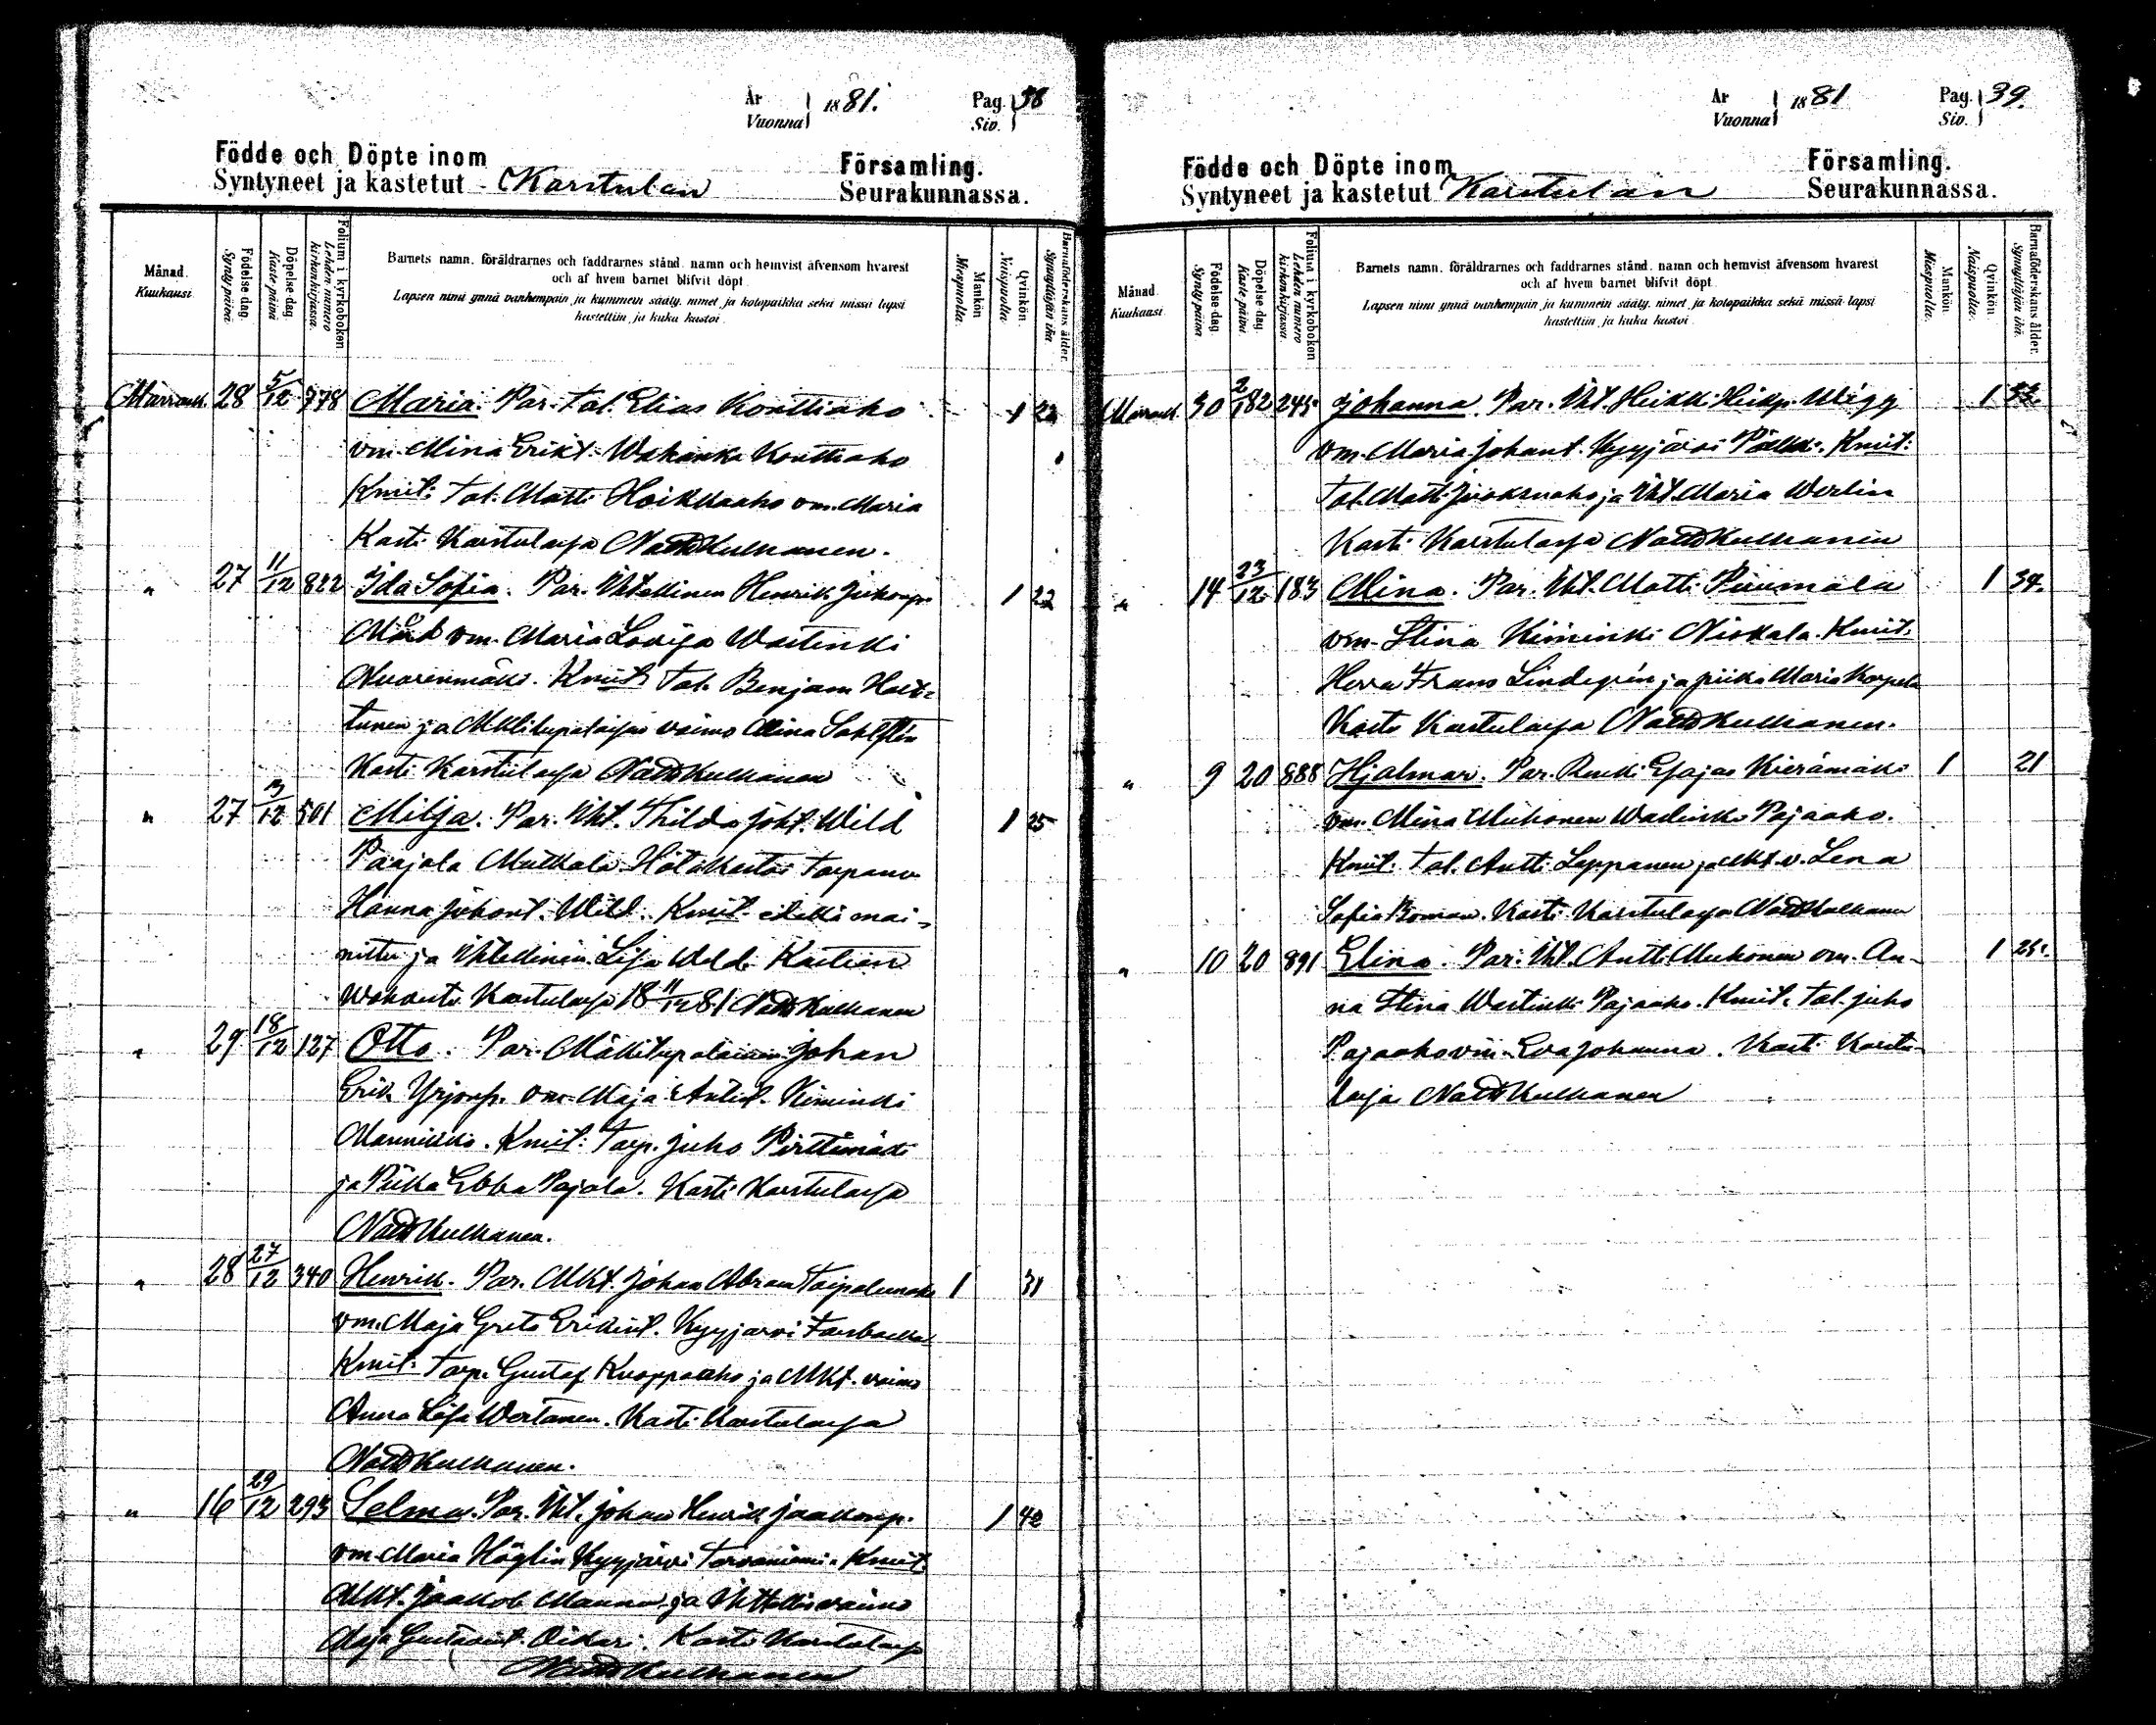 År Vuonna 1881. Pag. Siv. 38
Födde och Döpte inom Församling.
Syntyneet ja kastetut Karstulan Seurakunnassa.
Månad. Kuukausi.
Födelse-dag. Synty päivä.
Döpelse-dag. Kaste-päivä.
Folium i kyrkoboken Lehden numero kirkonkirjassa.
Barnets namn, föräldrarnes och faddrarnes stånd, namn och hemvist äfvensom hvarest
och af hvem barnet blifvit döpt.
Lapsen nimi ynnä vanhempain ja kummein sääty, nimet ja kotopaikka sekä missä lapsi
kastettiin ja kuka kastoi.
Mankön. Miespuolia.
Qvinkön. Naispuolia.
Barnaföderskans ålder. Synnyttäjän ikä.
Marrask. 28 5/12 778 Maria. Par. Tal. Elias Konttiaho 1 22
vm. Mina Erikt. Wahanka Konttiaho
Kmit: Tal. Matti Hoikkaaho vm. Maria
Kasti Karstulassa Kulkanen.
" 27 11/12 822 Ida Sofia. Par. Itellinen Henrik 1 22
vm. Maria Lovisa Wastinki
Kmit: Tal. Benjam
tunen ja vaimo Mina
Kasti Karstulassa Kulkanen
" 27 /12 501 Milja. Par. Thilda Joh. Wild 1 25
Paajala Mulkala
Hanna Johant. Wild. Kmit. mai-
nittu ja Itellinen Lisa Wild.
Karstulassa 18 11/12 81 Kulkanen
" 29 18/12 127 Otto. Par. Mäkitupalainen Johan
Erik vm. Maja Antint. Kiminki
Mannikko. Kmit: Torp. Juho Pirttimäki
ja Piika Ebba Pajala. Kasti Karstulassa
Kulkanen.
" 28 27/12 340 Henrik. Par. Mkt. Johan Abram 1 31
vm. Maja Greta Erikint. Kyyjärvi
Kmit: Torp. Gustaf ja Mkt. vaimo
Anna Lisa Wertanen. Kasti Karstulassa
Kulkanen.
" 16 29/12 293 Selma. Par. Johan Henrik Jaakonp. 1 42
vm. Maria Höglin Kyyjärvi Tervaniemi. Kmit.
Mkt. Jaakob Mannu ja vaimo
Maja Gustavint. Oikari. Kasti Karstulassa
Kulkanen
År Vuonna 1881 Pag. Siv. 39.
Födde och Döpte inom Församling.
Syntyneet ja kastetut Karstulan Seurakunnassa.
Månad. Kuukausi.
Födelse-dag. Synty päivä.
Döpelse-dag. Kaste-päivä.
Folium i kyrkoboken Lehden numero kirkonkirjassa.
Barnets namn, föräldrarnes och faddrarnes stånd, namn och hemvist äfvensom hvarest
och af hvem barnet blifvit döpt.
Lapsen nimi ynnä vanhempain ja kummein sääty, nimet ja kotopaikka sekä missä lapsi
kastettiin ja kuka kastoi.
Mankön. Miespuolia.
Qvinkön. Naispuolia.
Barnaföderskans ålder. Synnyttäjän ikä.
Marrask. 30 2/1 82 245 Johanna. Par. Heikki Heikp. Wigg 1 33.
vm. Maria Johant. Kyyjärvi Kmit:
Tal. Matti ja Maria Werlin
Kasti Karstulassa Kulkanen
" 14 23/12 183 Mina. Par. Matti Puumala 1 34.
vm. Stina Kiminki Niskala. Kmit.
Herra Frans Lindegrén ja piika Maria Korpela
Kasti Karstulassa Kulkanen.
" 9 20 888 Hjalmar. Par. Renki Esajas Kierämäki 1 21
vm. Mina Muhonen Wastinki Pajaaho.
Kmit. Tal. Antti Leppanen ja Mkt. v. Lena
Sofia Roman. Kasti Karstulassa Kulkanen
" 10 20 891 Elina. Par. Antti Muhonen vm. An- 1 25.
na Stina Wastinki Pajaaho. Kmit. Tal. Juho
Pajaaho vm. Eva Johanna. Kasti Karstu-
lassa Kulkanen